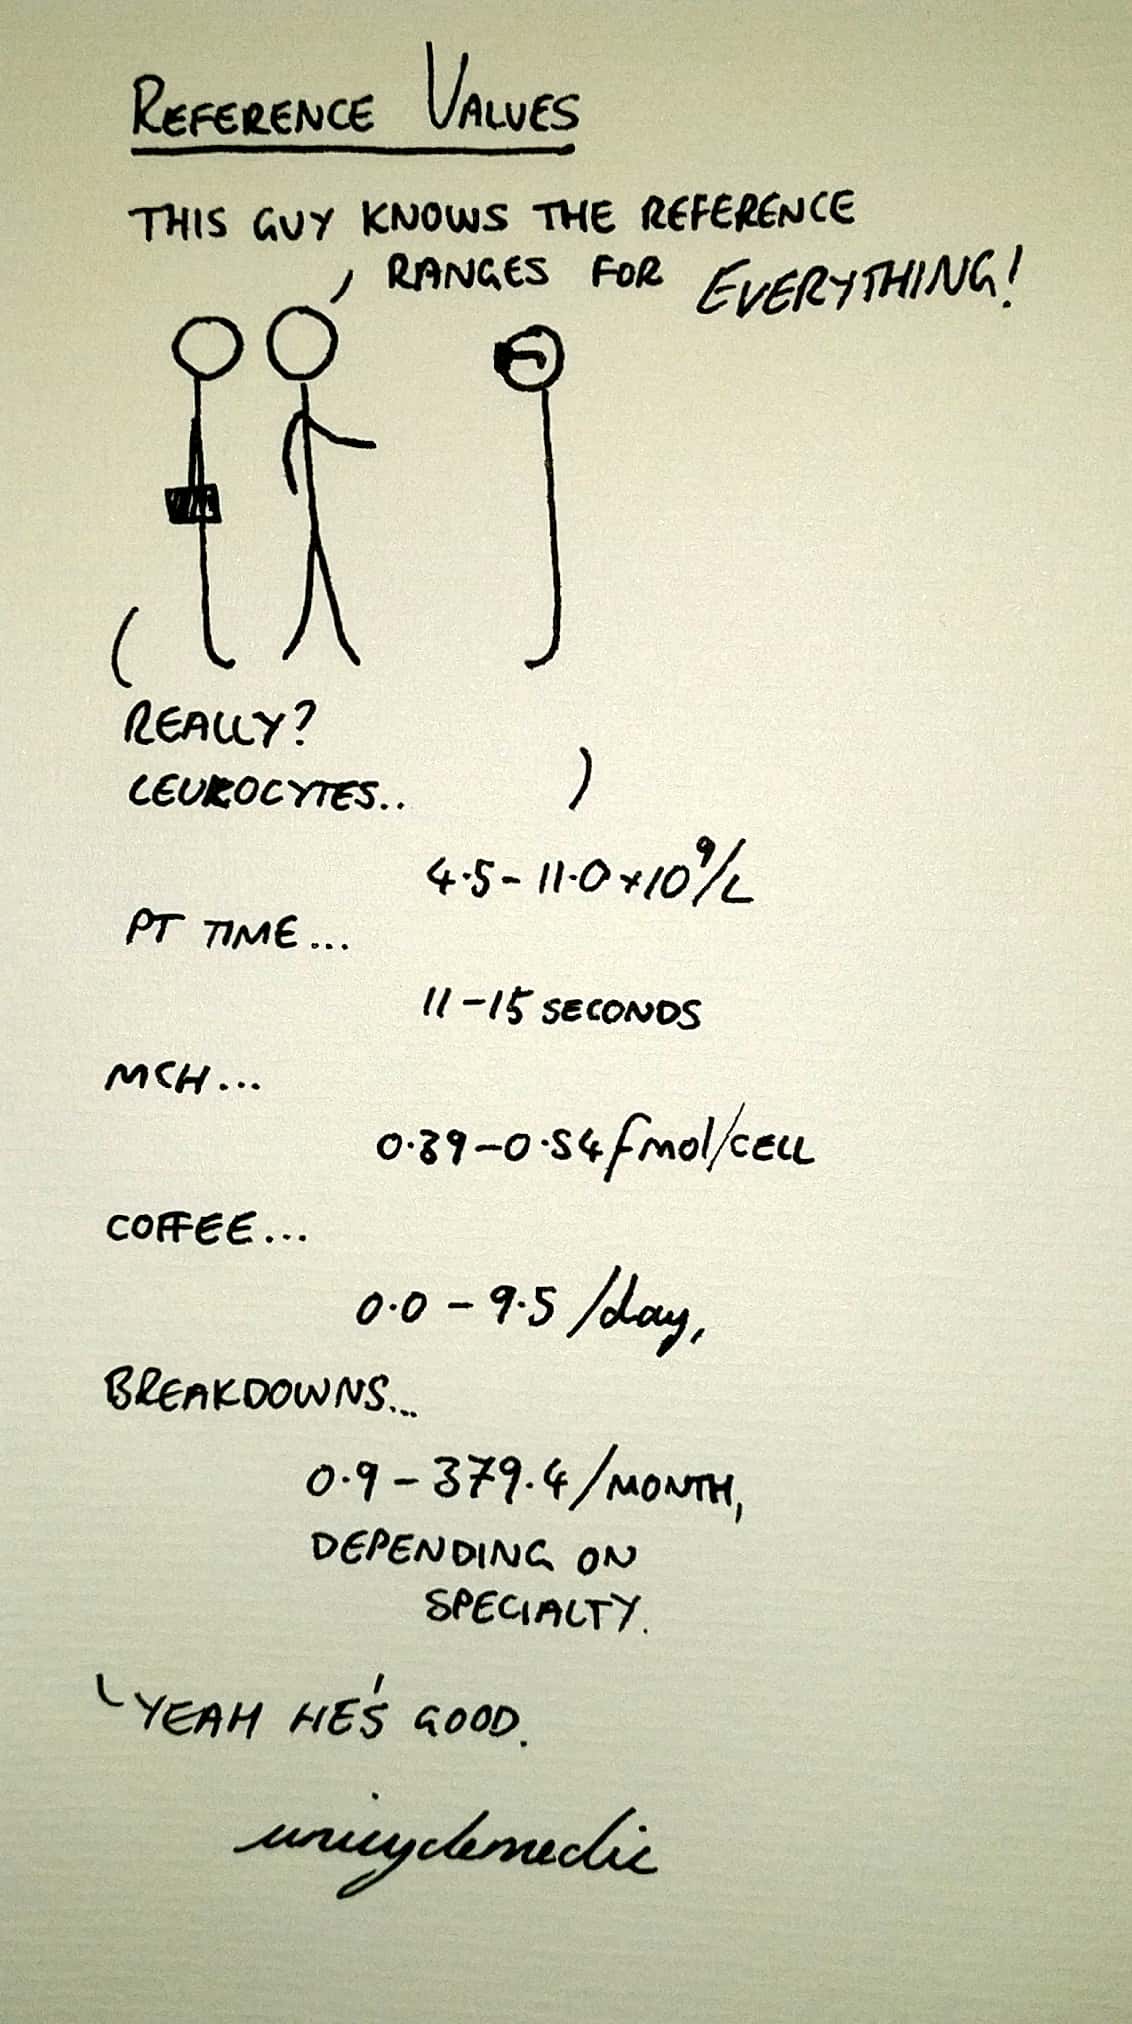 REFERENCE VALUES
THIS GUY KNOWS THE REFERENCE
RANGES FOR EVERYTHING!
REALLY?
LEUKOCYTES..
4.5 - 11.0 x 10⁹/L
PT TIME...
11-15 SECONDS
MCH...
0.39-0.54 fmol/CELL
COFFEE...
0.0 - 9.5 /day,
BREAKDOWNS...
0.9 - 379.4/MONTH,
DEPENDING ON
SPECIALTY.
YEAH HE'S GOOD.
unicyclemedic